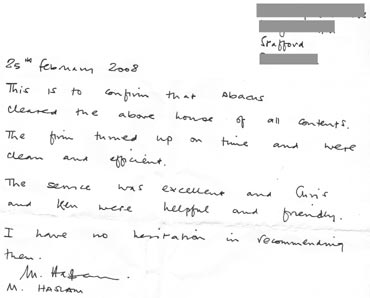 Stafford
25th February 2008
This is to confirm that Abacus
cleared the above house of all contents.
The firm turned up on time and were
clean and efficient.
The service was excellent and Chris
and Ken were helpful and friendly.
I have no hesitation in recommending
them.
M. Haslam.
M. HASLAM